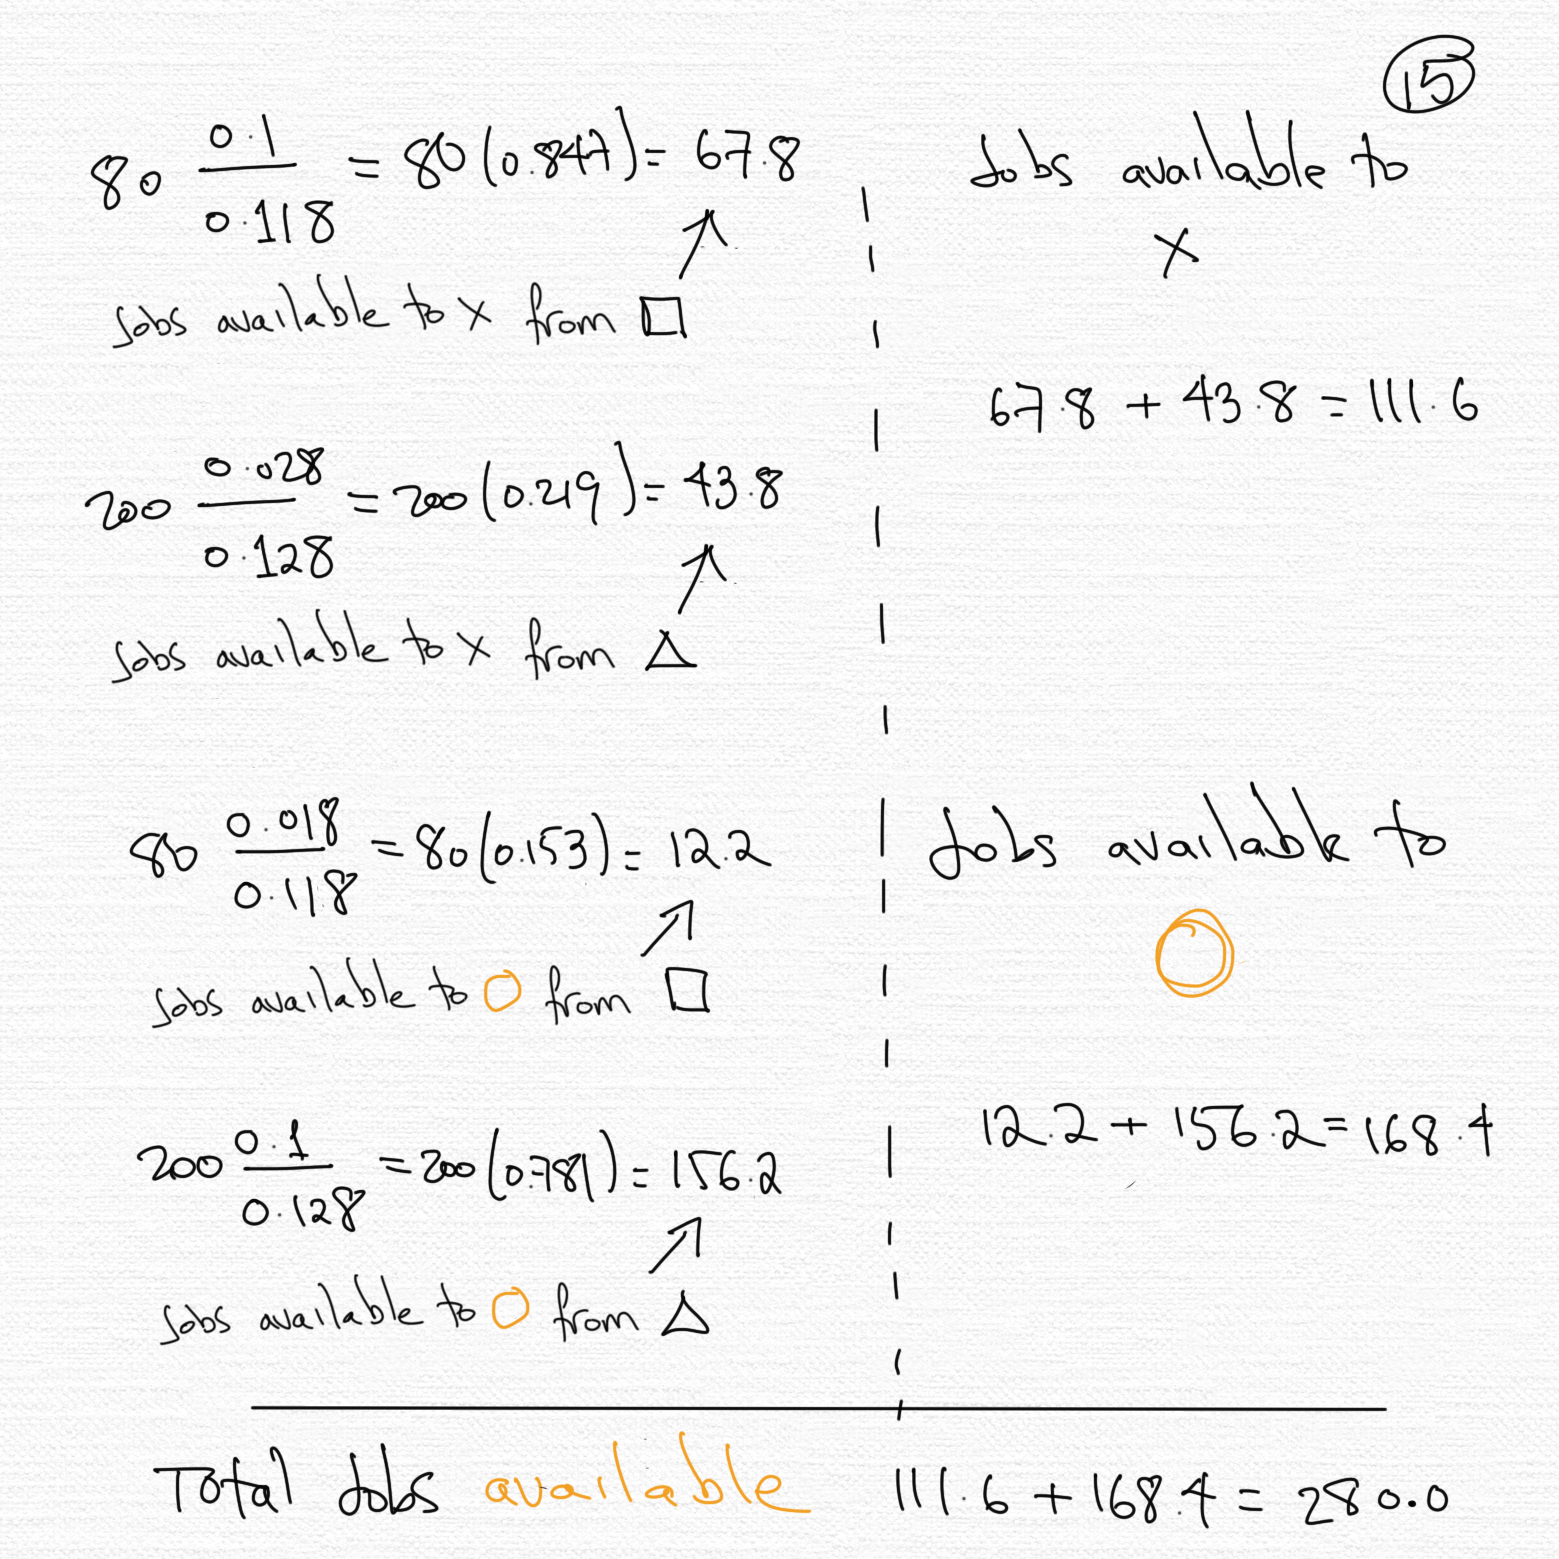 15
80 0.1/0.118 = 80(0.847) = 67.8
Jobs available to x from □
200 0.028/0.128 = 200(0.219) = 43.8
Jobs available to x from △
80 0.018/0.118 = 80(0.153) = 12.2
Jobs available to O from □
200 0.1/0.128 = 200(0.781) = 156.2
Jobs available to O from △
Jobs available to
X
67.8 + 43.8 = 111.6
Jobs available to
O
12.2 + 156.2 = 168.4
Total Jobs available 111.6 + 168.4 = 280.0